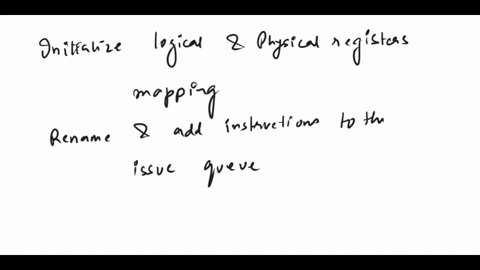 Initialize logical & Physical registers
mapping
Rename & add instructions to the
issue queue